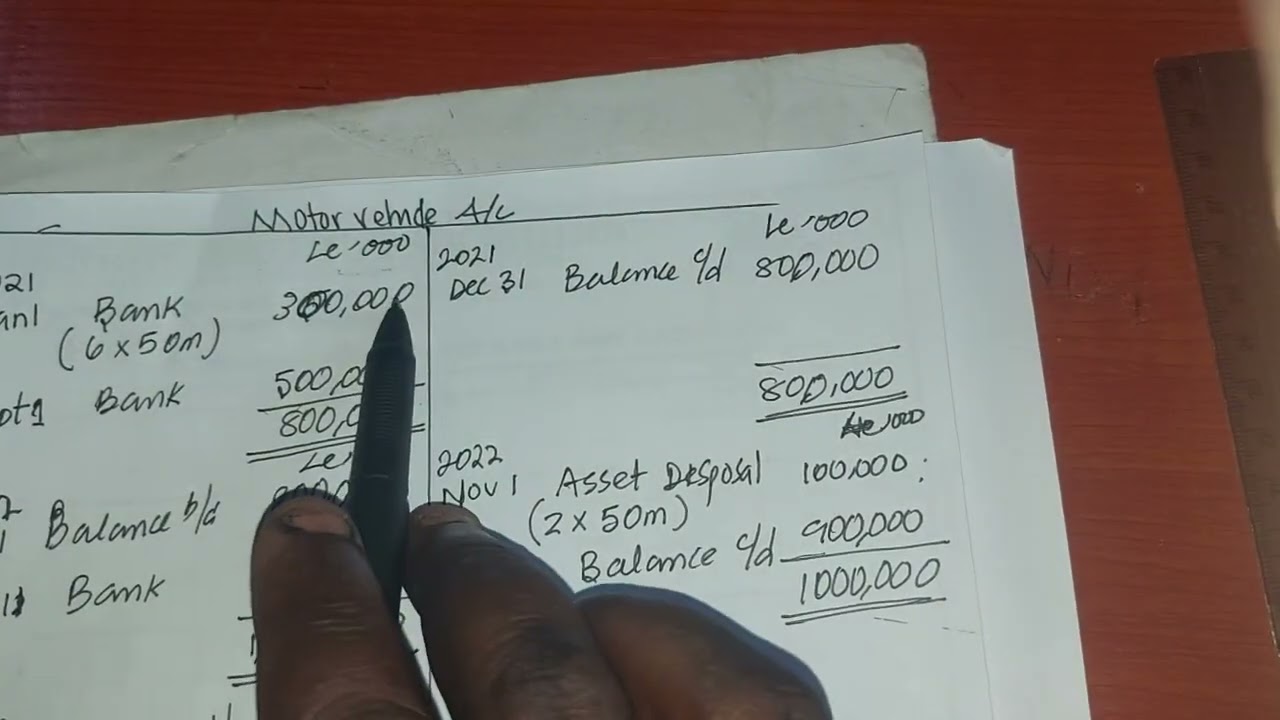 Motor vehide A/c
Le '000 Le '000
21 2021
an1 Bank 300,000 Dec 31 Balance c/d 800,000
(6 x 50m)
pt1 Bank 500,0
800,0 800,000
Le 2022 Le '000
Nov 1 Asset Desposal 100,000
(2 x 50m)
Balance b/d Balance c/d 900,000
Bank 1000,000